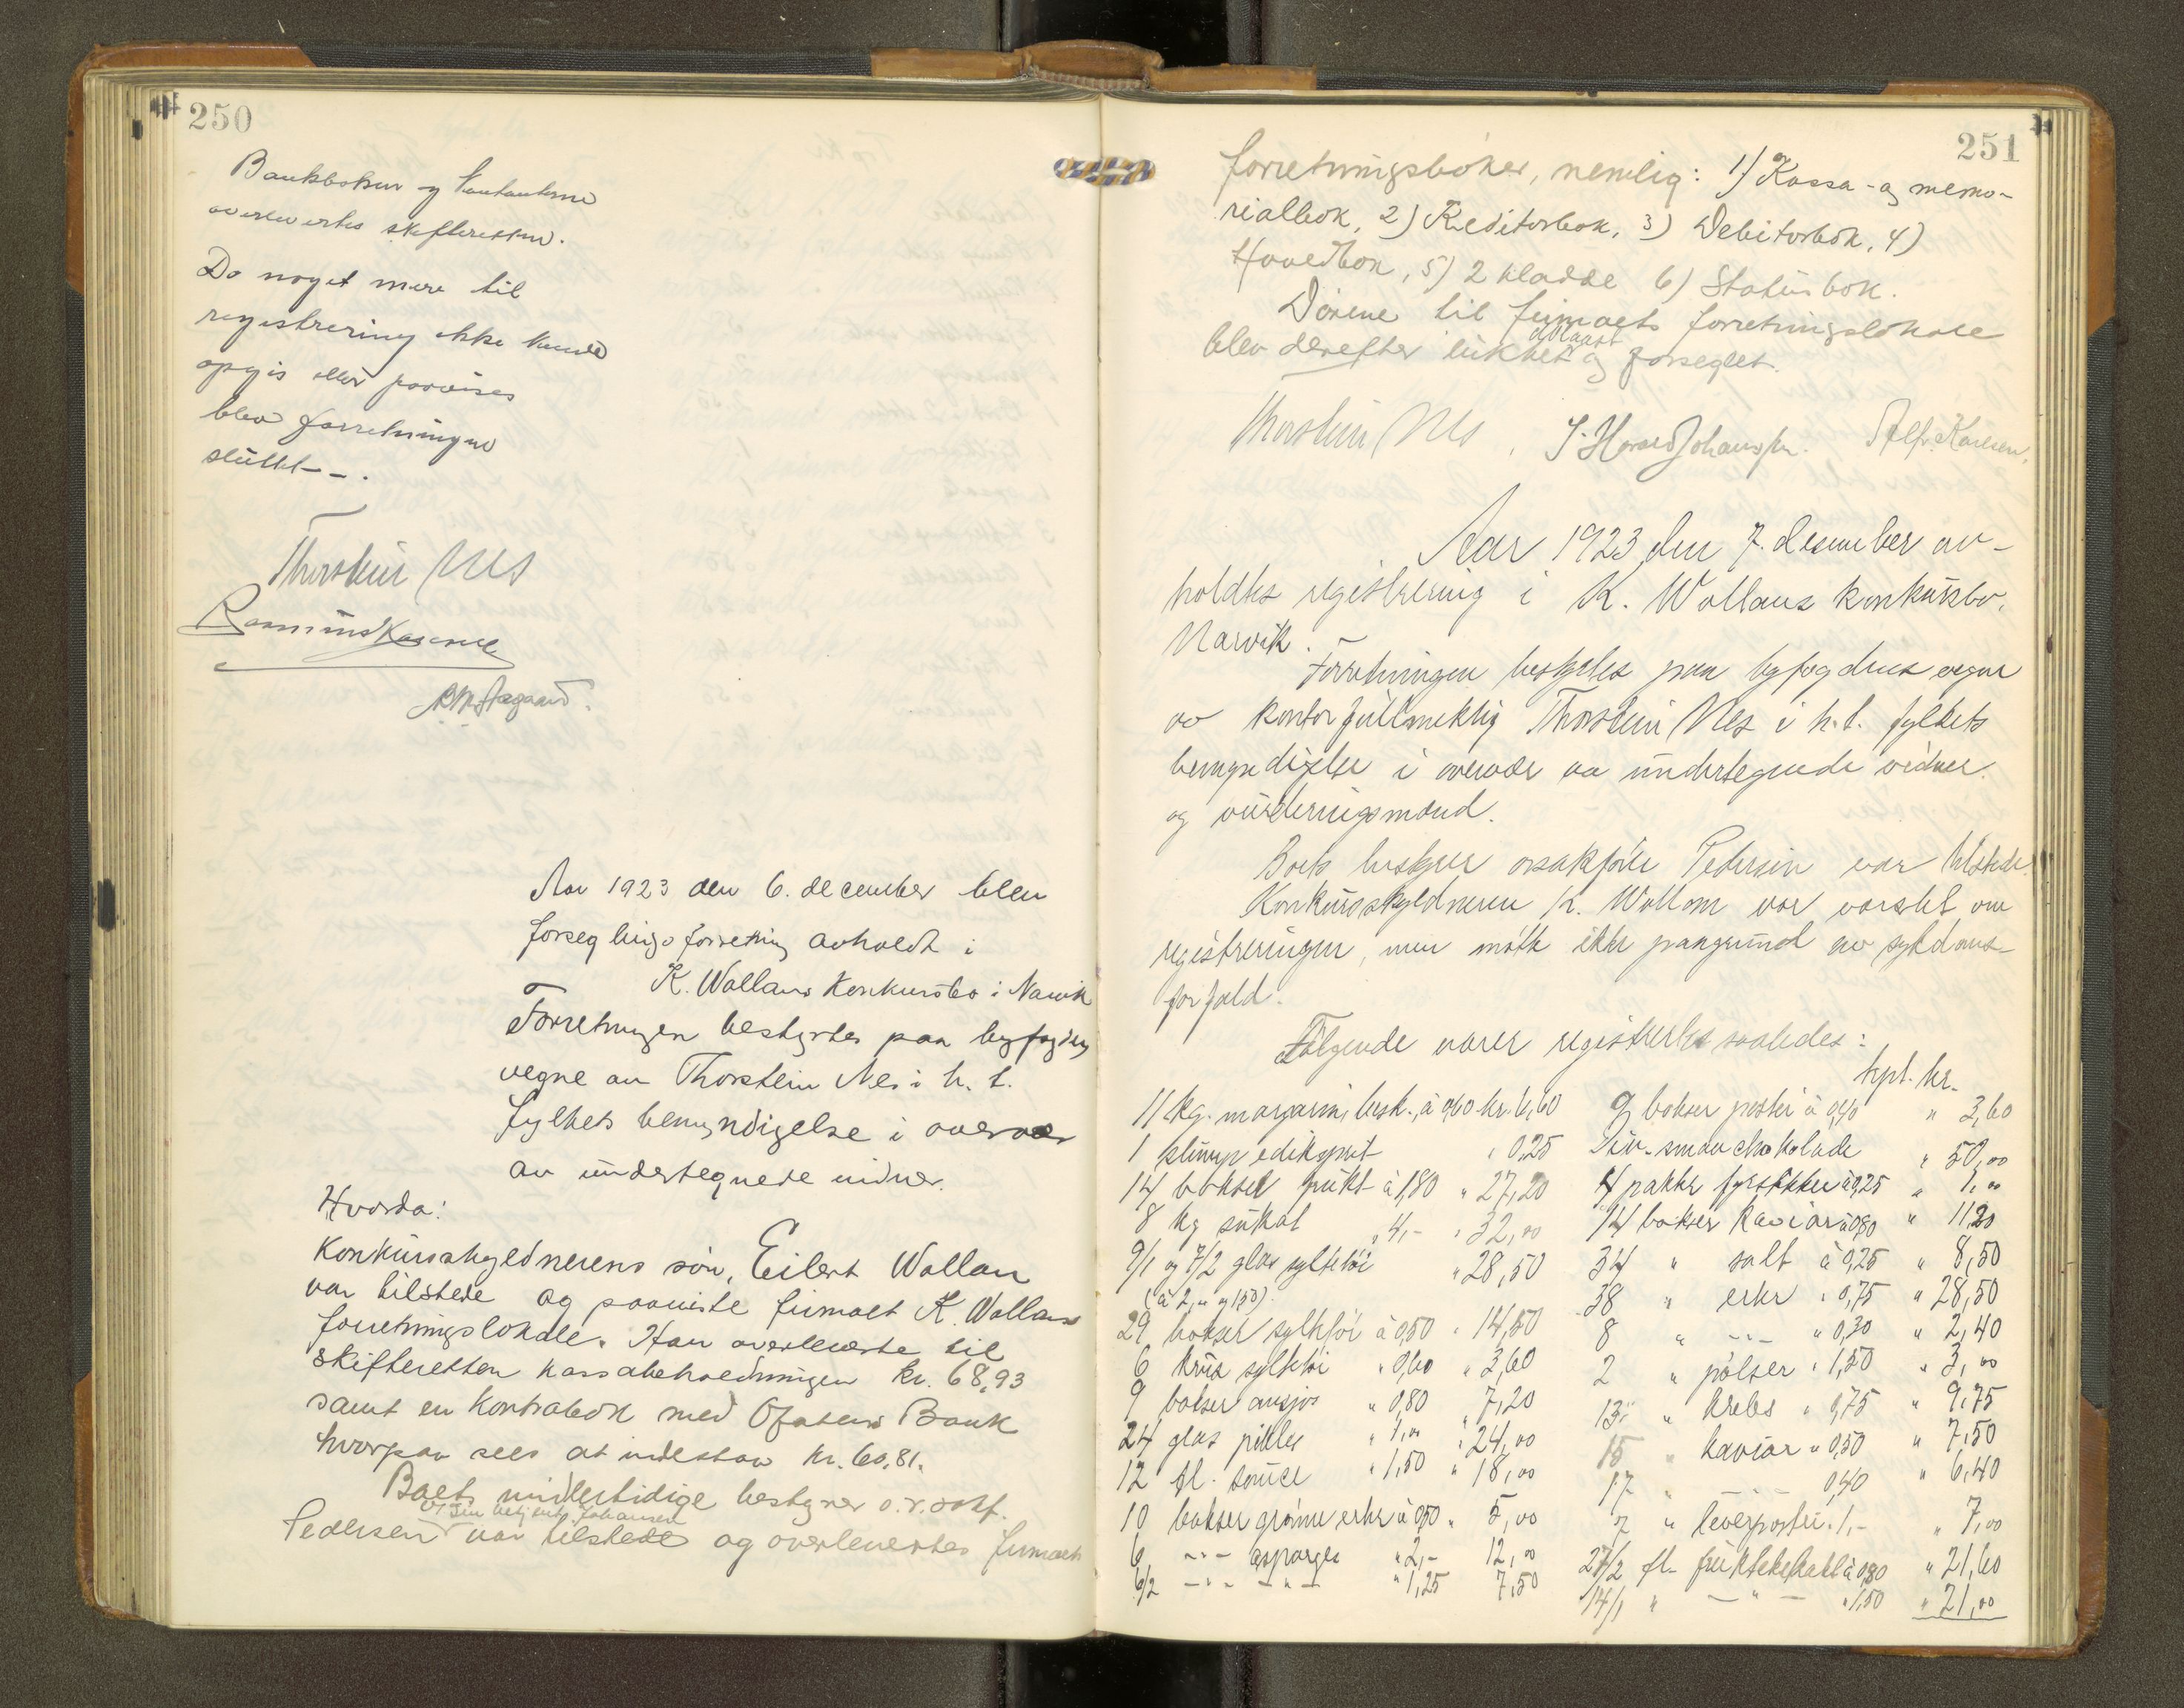 250
Bankboken og kontanterne
overlevertes skifteretten.
Da noget mere til
registrering ikke kunde
opgis eller paavises
blev forretningen
sluttet - - .
Thorstein Nes
Rasmus
Aar 1923 den 6. december blev
forseglingsforretning avholdt i
K. Wollans Konkursbo i Narvik
Forretningen bestyrtes paa byfogdens
vegne av Thorstein Nes i h. t.
fylkets bemyndigelse i overvær
av undertegnede vidner.
Hvorda:
Konkursskyldnerens søn, Eilert Wollan
var tilstede og paaviste firmaet K. Wollans
forretningslokale. Han overleverte til
skifteretten kassabeholdningen kr. 68,93
samt en Kontrabok med Ofotens Bank
hvorpaa sees at indestaa kr. 60,81.
Boets midlertidige bestyrer o.r.sakf.
Pedersen var tilstede og overlevertes firmaets
251
forretningsbøker, nemlig: 1) Kassa- og memo-
rialbok, 2) Kreditorbok, 3) Debitorbok, 4)
Hovedbok, 5) 2 kladde 6) Statusbok.
Dørene til firmaets forretningslokale
blev derefter lukket avlaast og forseglet.
Thorstein Nes , J. Harald Johansen. Alf. Karlsen.
Aar 1923 den 7. desember av-
holdtes registrering i K. Wollans konkursbo,
Narvik.
Forretningen bestyrtes paa byfogdens vegne
av kontorfullmektig Thorstein Nes i h. t. fylkets
bemyndigelse i overvær av undertegnede vidner
og vurderingsmænd.
Boets bestyrer o.r.sakfører Pedersen var tilstede.
Konkursskyldneren K. Wollan var varslet om
registreringen, men møtte ikke paagrund av sykdoms-
forfald.
Følgende varer registrertes saaledes:
kr.
11 kg. margarin, besk., à 0,60 kr. 6,60
1 edikspirit " 0,25
14 bokser frukt à 1,80 " 27,20
8 kg sukat " 4,- " 32,00
9/1 og 7/2 glas syltetøi " 28,50
(à 2,00 og 1,50)
29 bokser syltetøi à 0,50 " 14,50
6 krus syltetøi " 0,60 " 3,60
9 bokser ansjos " 0,80 " 7,20
24 glas pikles " 1,00 " 24,00
12 fl. sauce " 1,50 " 18,00
10 bokser grønne erter à 0,50 " 5,00
6 - " - asparges " 2,- 12,00
6/2 - " - - " - " 1,25 7,50
9 bokser postei à 0,40 " 3,60
Div. smaa chokolade " 50,00
4 pakker fyrstikker à 0,25 " 1,00
14 bokser kaviar à 0,80 " 11,20
34 " salt à 0,25 " 8,50
38 " erter " 0,75 " 28,50
8 " - " - " 0,30 " 2,40
2 " pølser " 1,50 " 3,00
13 " krebs " 0,75 " 9,75
15 " kaviar " 0,50 " 7,50
17 " - " - 0,40 " 6,40
7 " leverpostei " 1,- " 7,00
27/2 fl. à 0,80 " 21,60
14/1 " - " - " 1,50 " 21,00